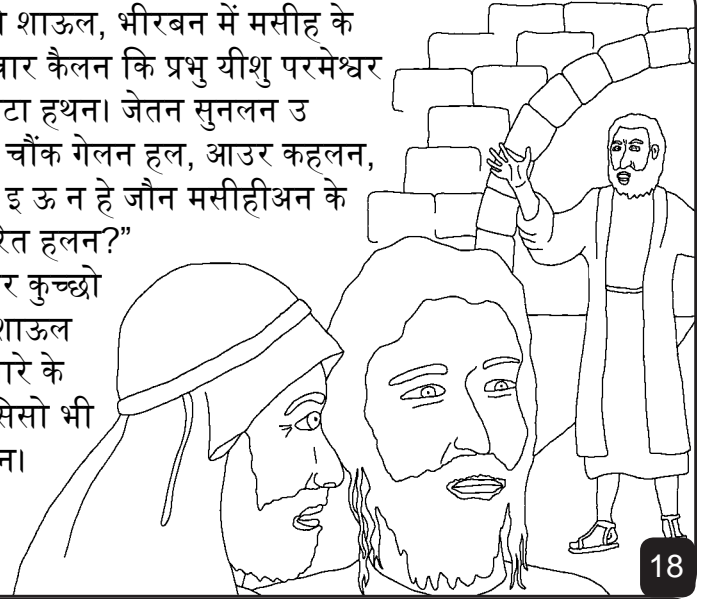 शाऊल, भीरबन में मसीह के
कैलन कि प्रभु यीशु परमेश्वर
हथन। जेतन सुनलन उ
चौंक गेलन हल, आउर कहलन,
इ ऊ न हे जौन मसीहीअन के
हलन?”
कुच्छो
शाऊल
के
भी
18